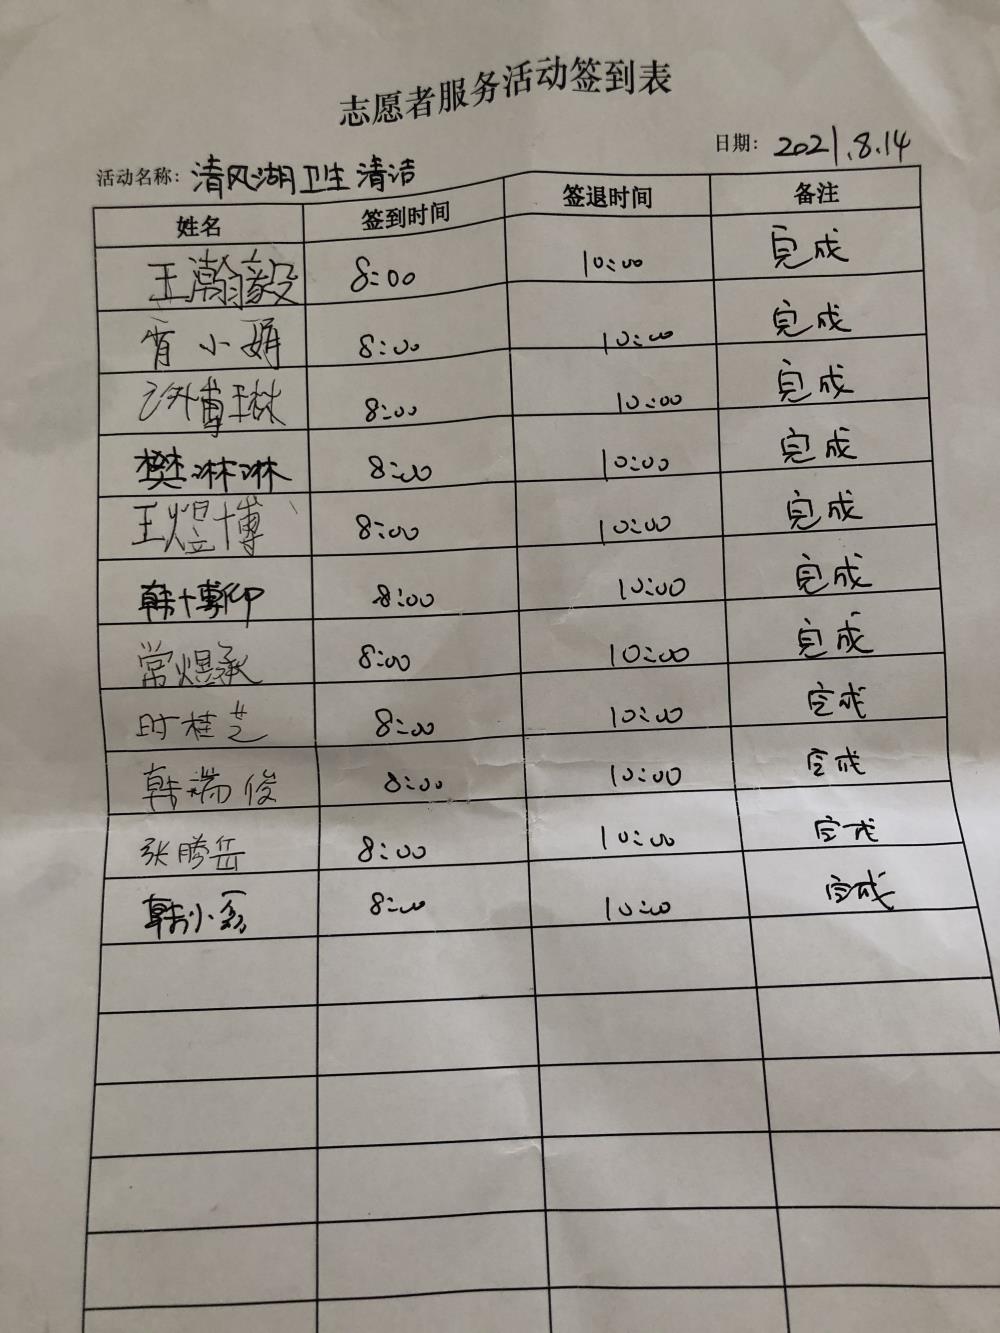 志愿者服务活动签到表
日期: 2021.8.14
活动名称: 清风湖卫生清洁
姓名 签到时间 签退时间 备注
王瀚毅 8:00 10:00 完成
肖小娟 8:00 10:00 完成
博琳 8:00 10:00 完成
樊淋淋 8:00 10:00 完成
王煜博 8:00 10:00 完成
韩博仰 8:00 10:00 完成
常煜承 8:00 10:00 完成
时桂芝 8:00 10:00 完成
韩瑞俊 8:00 10:00 完成
张腾岳 8:00 10:00 完成
韩小磊 8:00 10:00 完成